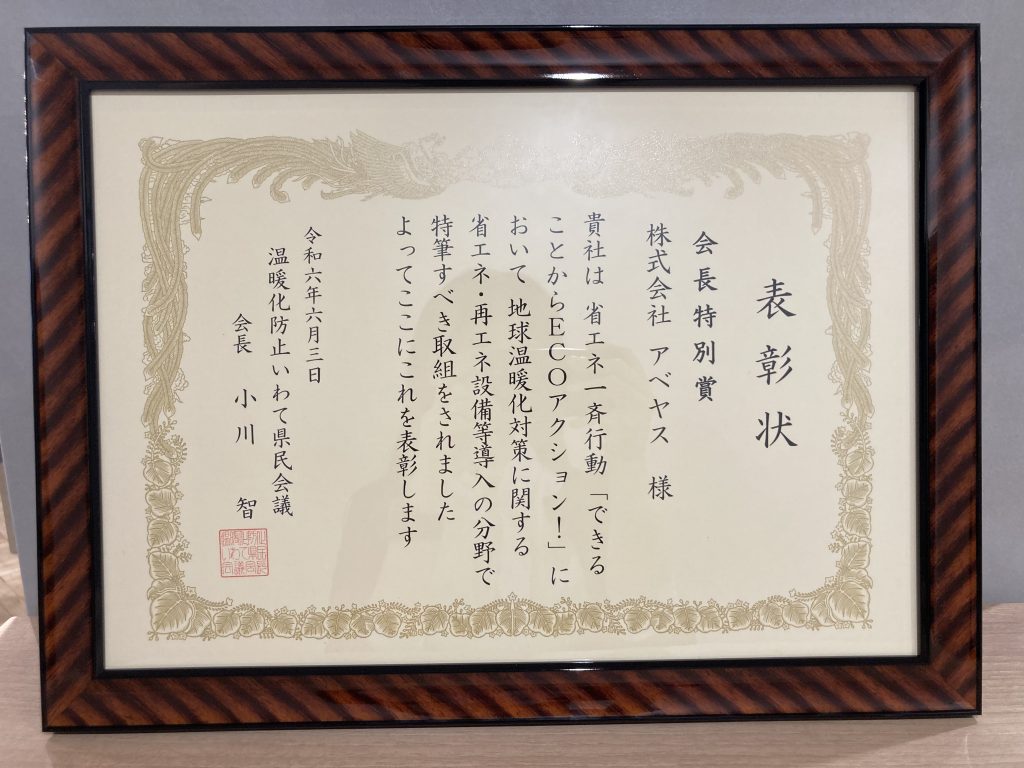 表彰状
会長特別賞
株式会社 アベヤス 様
貴社は 省エネ一斉行動 「できる
ことからＥＣＯアクション！」に
おいて 地球温暖化対策に関する
省エネ・再エネ設備等導入の分野で
特筆すべき取組をされました
よってここにこれを表彰します
令和六年六月三日
温暖化防止いわて県民会議
会長 小川 智